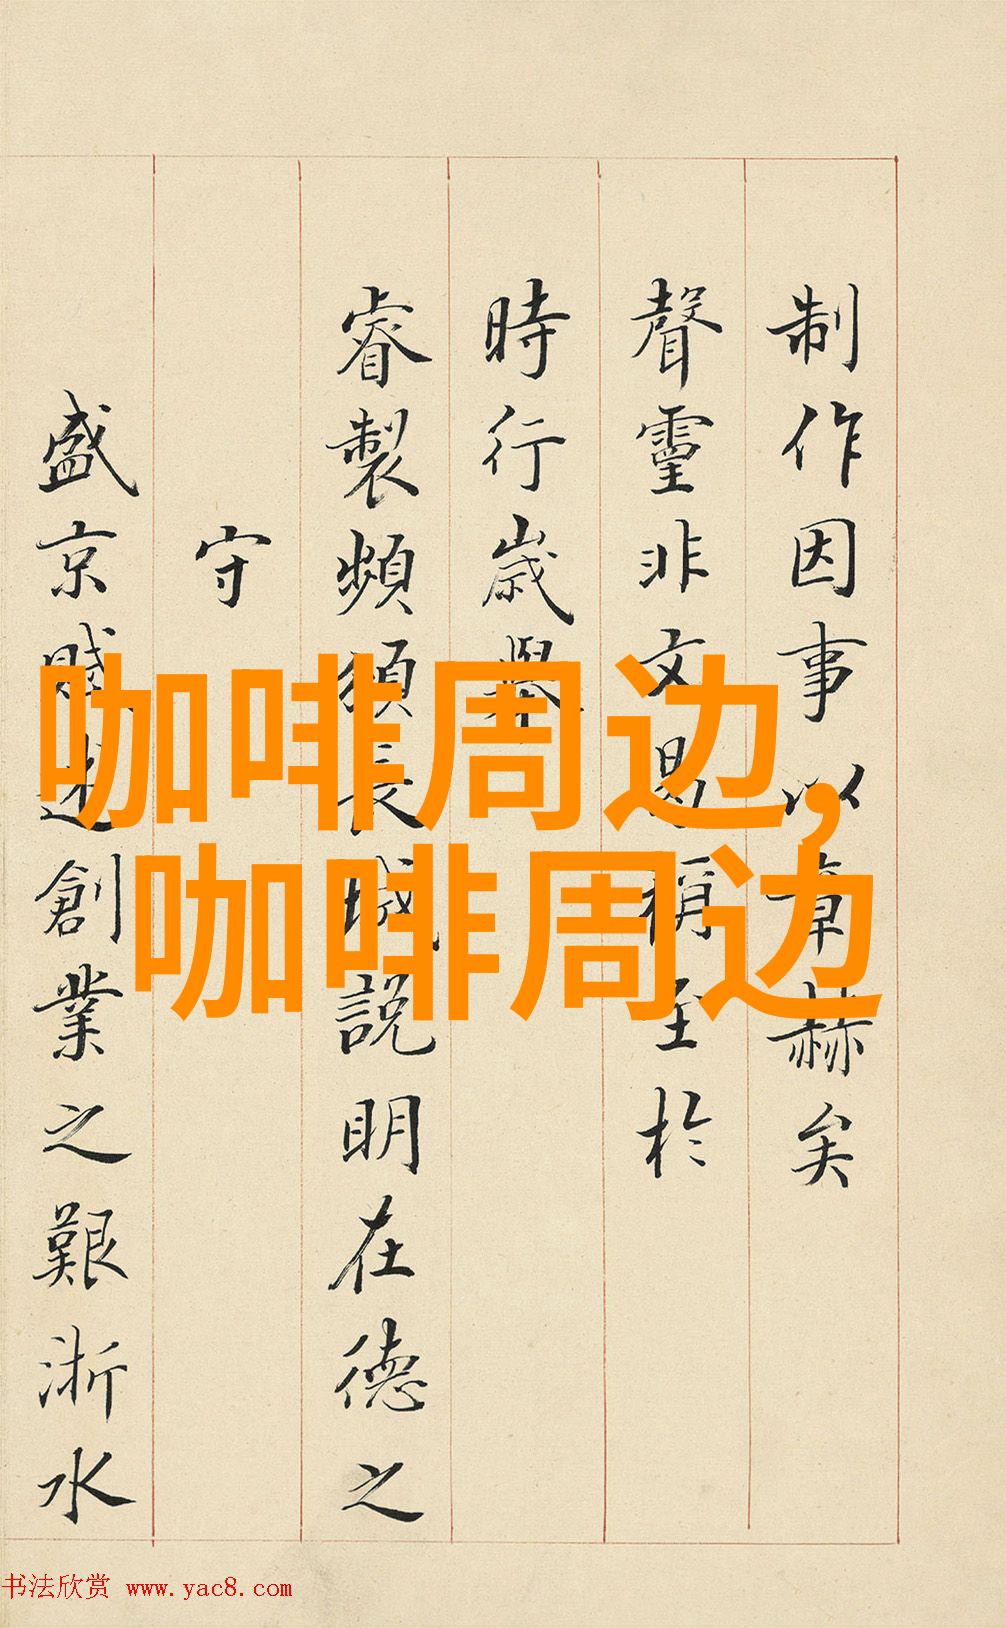 制作因事以章赫矣
聲靈非文曷稱至於
時行歲舉
睿製頻頒長城説明在德之
守
盛京賦述創業之艱浙水
咖啡周边,
咖啡周边
书法欣赏 www.yac8.com